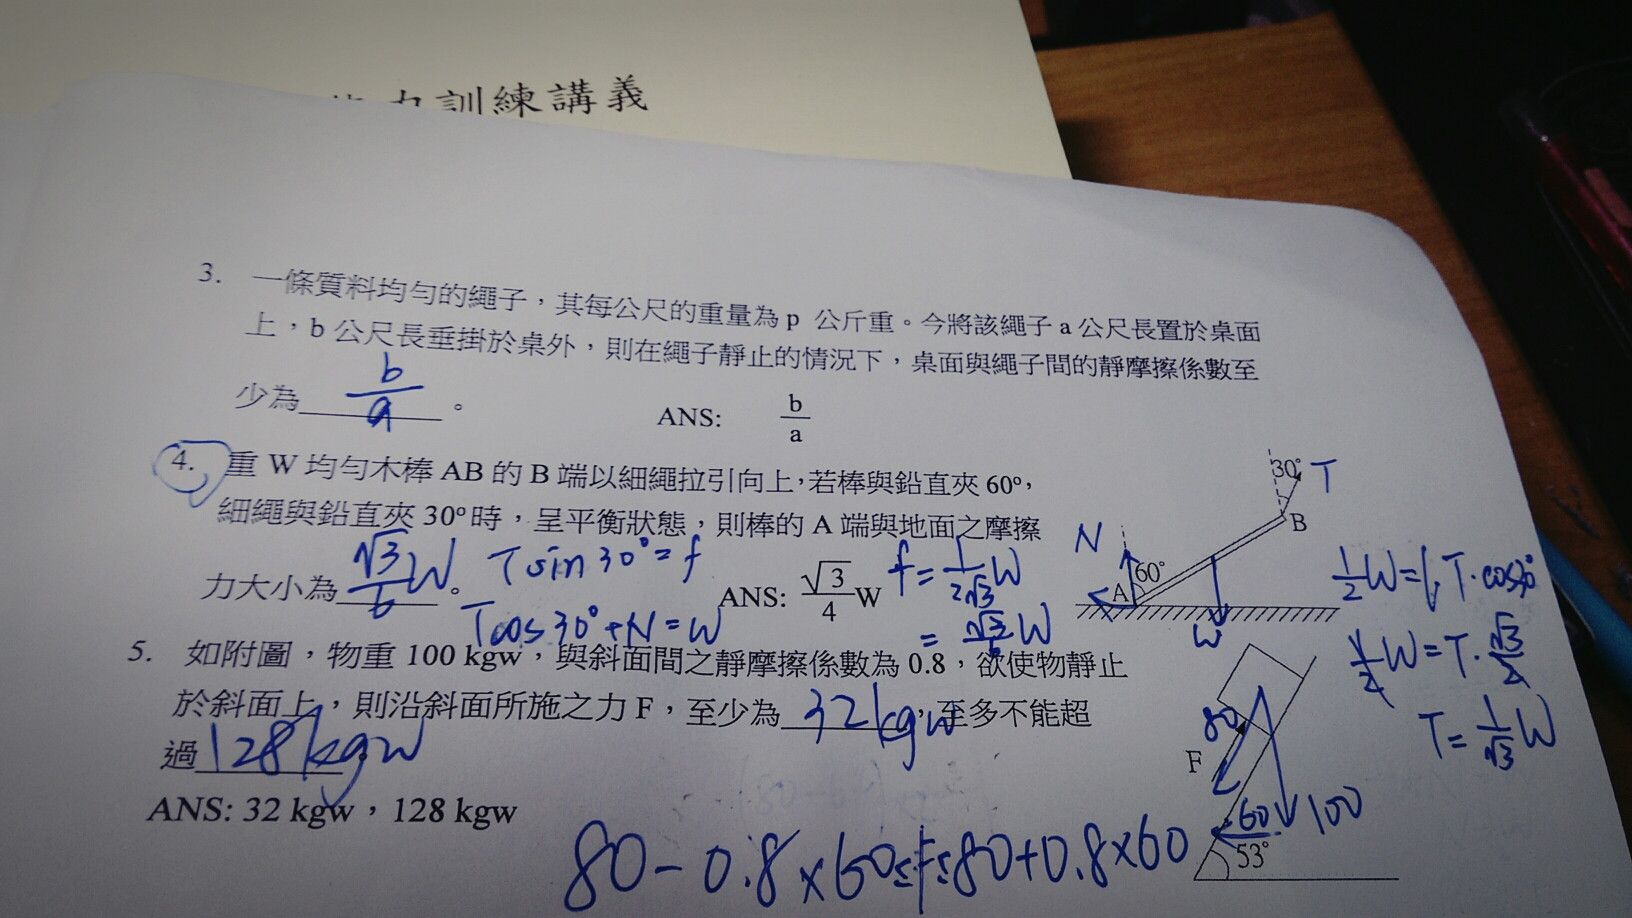 訓練講義
3. 一條質料均勻的繩子，其每公尺的重量為 p 公斤重。今將該繩子 a 公尺長置於桌面
上，b 公尺長垂掛於桌外，則在繩子靜止的情況下，桌面與繩子間的靜摩擦係數至
少為 b/a 。 ANS: b/a
4. 重 W 均勻木棒 AB 的 B 端以細繩拉引向上，若棒與鉛直夾 60°，
細繩與鉛直夾 30°時，呈平衡狀態，則棒的 A 端與地面之摩擦
力大小為 √3/6 W 。 ANS: √3/4 W
T sin 30° = f
T cos 30° + N = W
f = 1/2√3 W
= √3/6 W
30° T
B
N
60°
A
W
W = T · √3
T = 1/√3 W
5. 如附圖，物重 100 kgw，與斜面間之靜摩擦係數為 0.8，欲使物靜止
於斜面上，則沿斜面所施之力 F，至少為 32 kgw，至多不能超
過 128 kgw
ANS: 32 kgw，128 kgw
80
F
60
100
53°
80 - 0.8 × 60 ≤ F ≤ 80 + 0.8 × 60